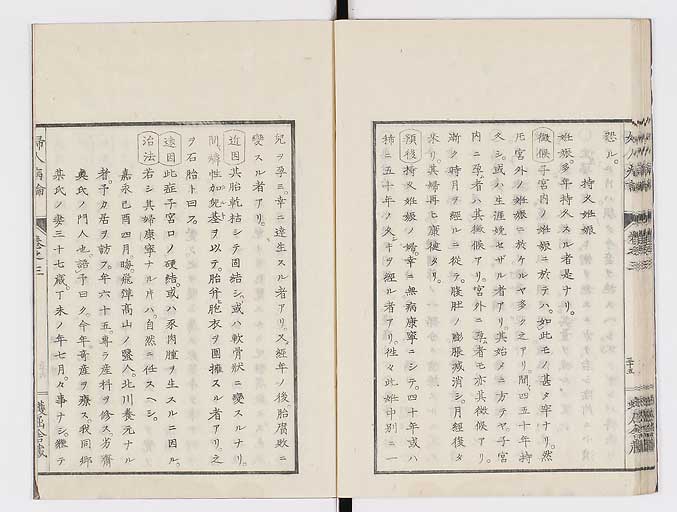 怨ル。
持久妊娠
妊娠。多年持久スル者是ナリ。
徴候 子宮内ノ妊娠ニ於テハ。如此モノ甚タ罕ナリ。然
𪜈宮外ノ妊娠ニ於ケルヤ多ク之アリ。間。五十年持
久シ。或ハ生涯娩セザル者アリ。其始メニ方テヤ。子宮
内ニ孕ム者ハ其徴候アリ。宮外ニ孕ム者モ亦其徴候アリ。
漸ク時月ヲ經ルニ從テ。腹肚ノ膨脹減消シ。月經復タ
來リ。其婦再ヒ康健タリ。
預後 持久妊娠ノ婦。幸ニ無病康寧ニシテ。四十年或ハ
五十年ノ久キヲ經ル者アリ。往々此妊中別ニ一
兒ヲ孕ミ。幸ニ達生スル者アリ。又經年ノ後胎腐敗ニ
變スル者アリ。
近因 其胎乾枯シテ固結シ。或ハ軟骨狀ニ變スルナリ。
間。燐性加兒基ヲ以テ。胎幷ニ胞衣ヲ圍擁スル者アリ。之
ヲ石胎ト曰フ。
遠因 此症子宮口ノ硬結。或ハ豕肉腫ヲ生スルニ因ル。
治法 若シ其婦康寧ナル片ハ。自然ニ任スヘシ。
嘉永己酉四月晦。飛彈高山ノ醫人。北川養元ナル
者予カ居ヲ訪フ。年六十五。專ラ産科ヲ修ス。方齋
奥氏ノ門人也。語予曰ク。今年奇產ヲ療ス。我同鄉
某氏ノ妻三十七歲。丁未ノ年七月。々事ナシ。繼テ
婦人病論
卷之三